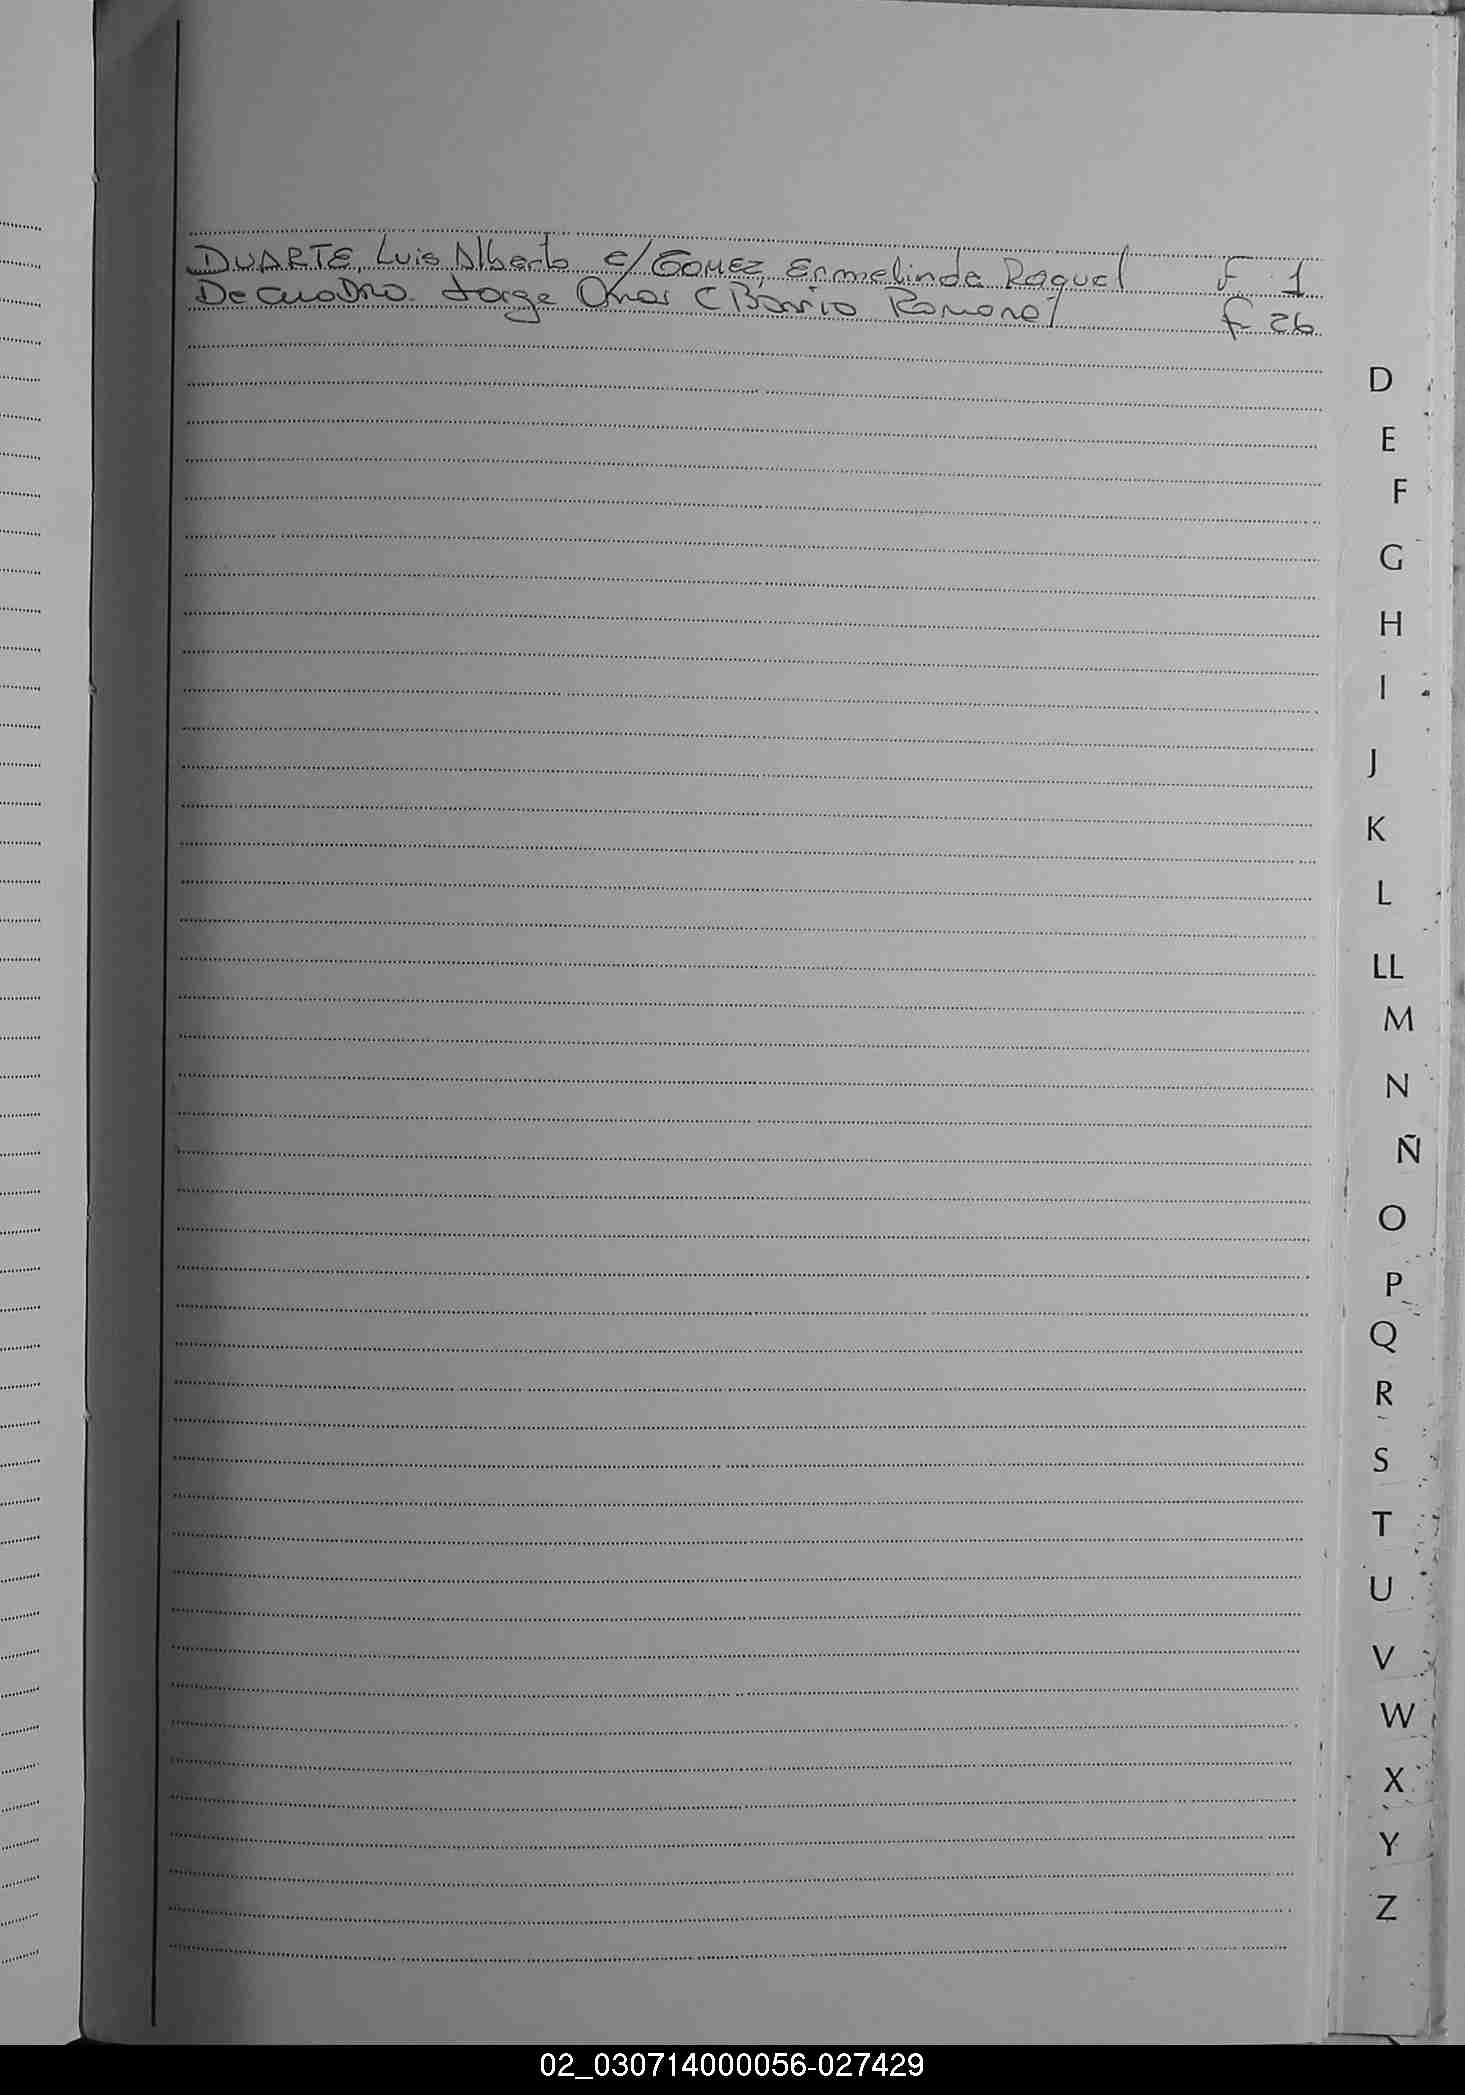 DUARTE, Luis Alberto c/ GOMEZ, Ermelinda Raquel F. 1
DecuaDro. Jorge Omar C Barrio Ramona F 26
D
E
F
G
H
I
J
K
L
LL
M
N
Ñ
O
P
Q
R
S
T
U
V
W
X
Y
Z
02_030714000056-027429